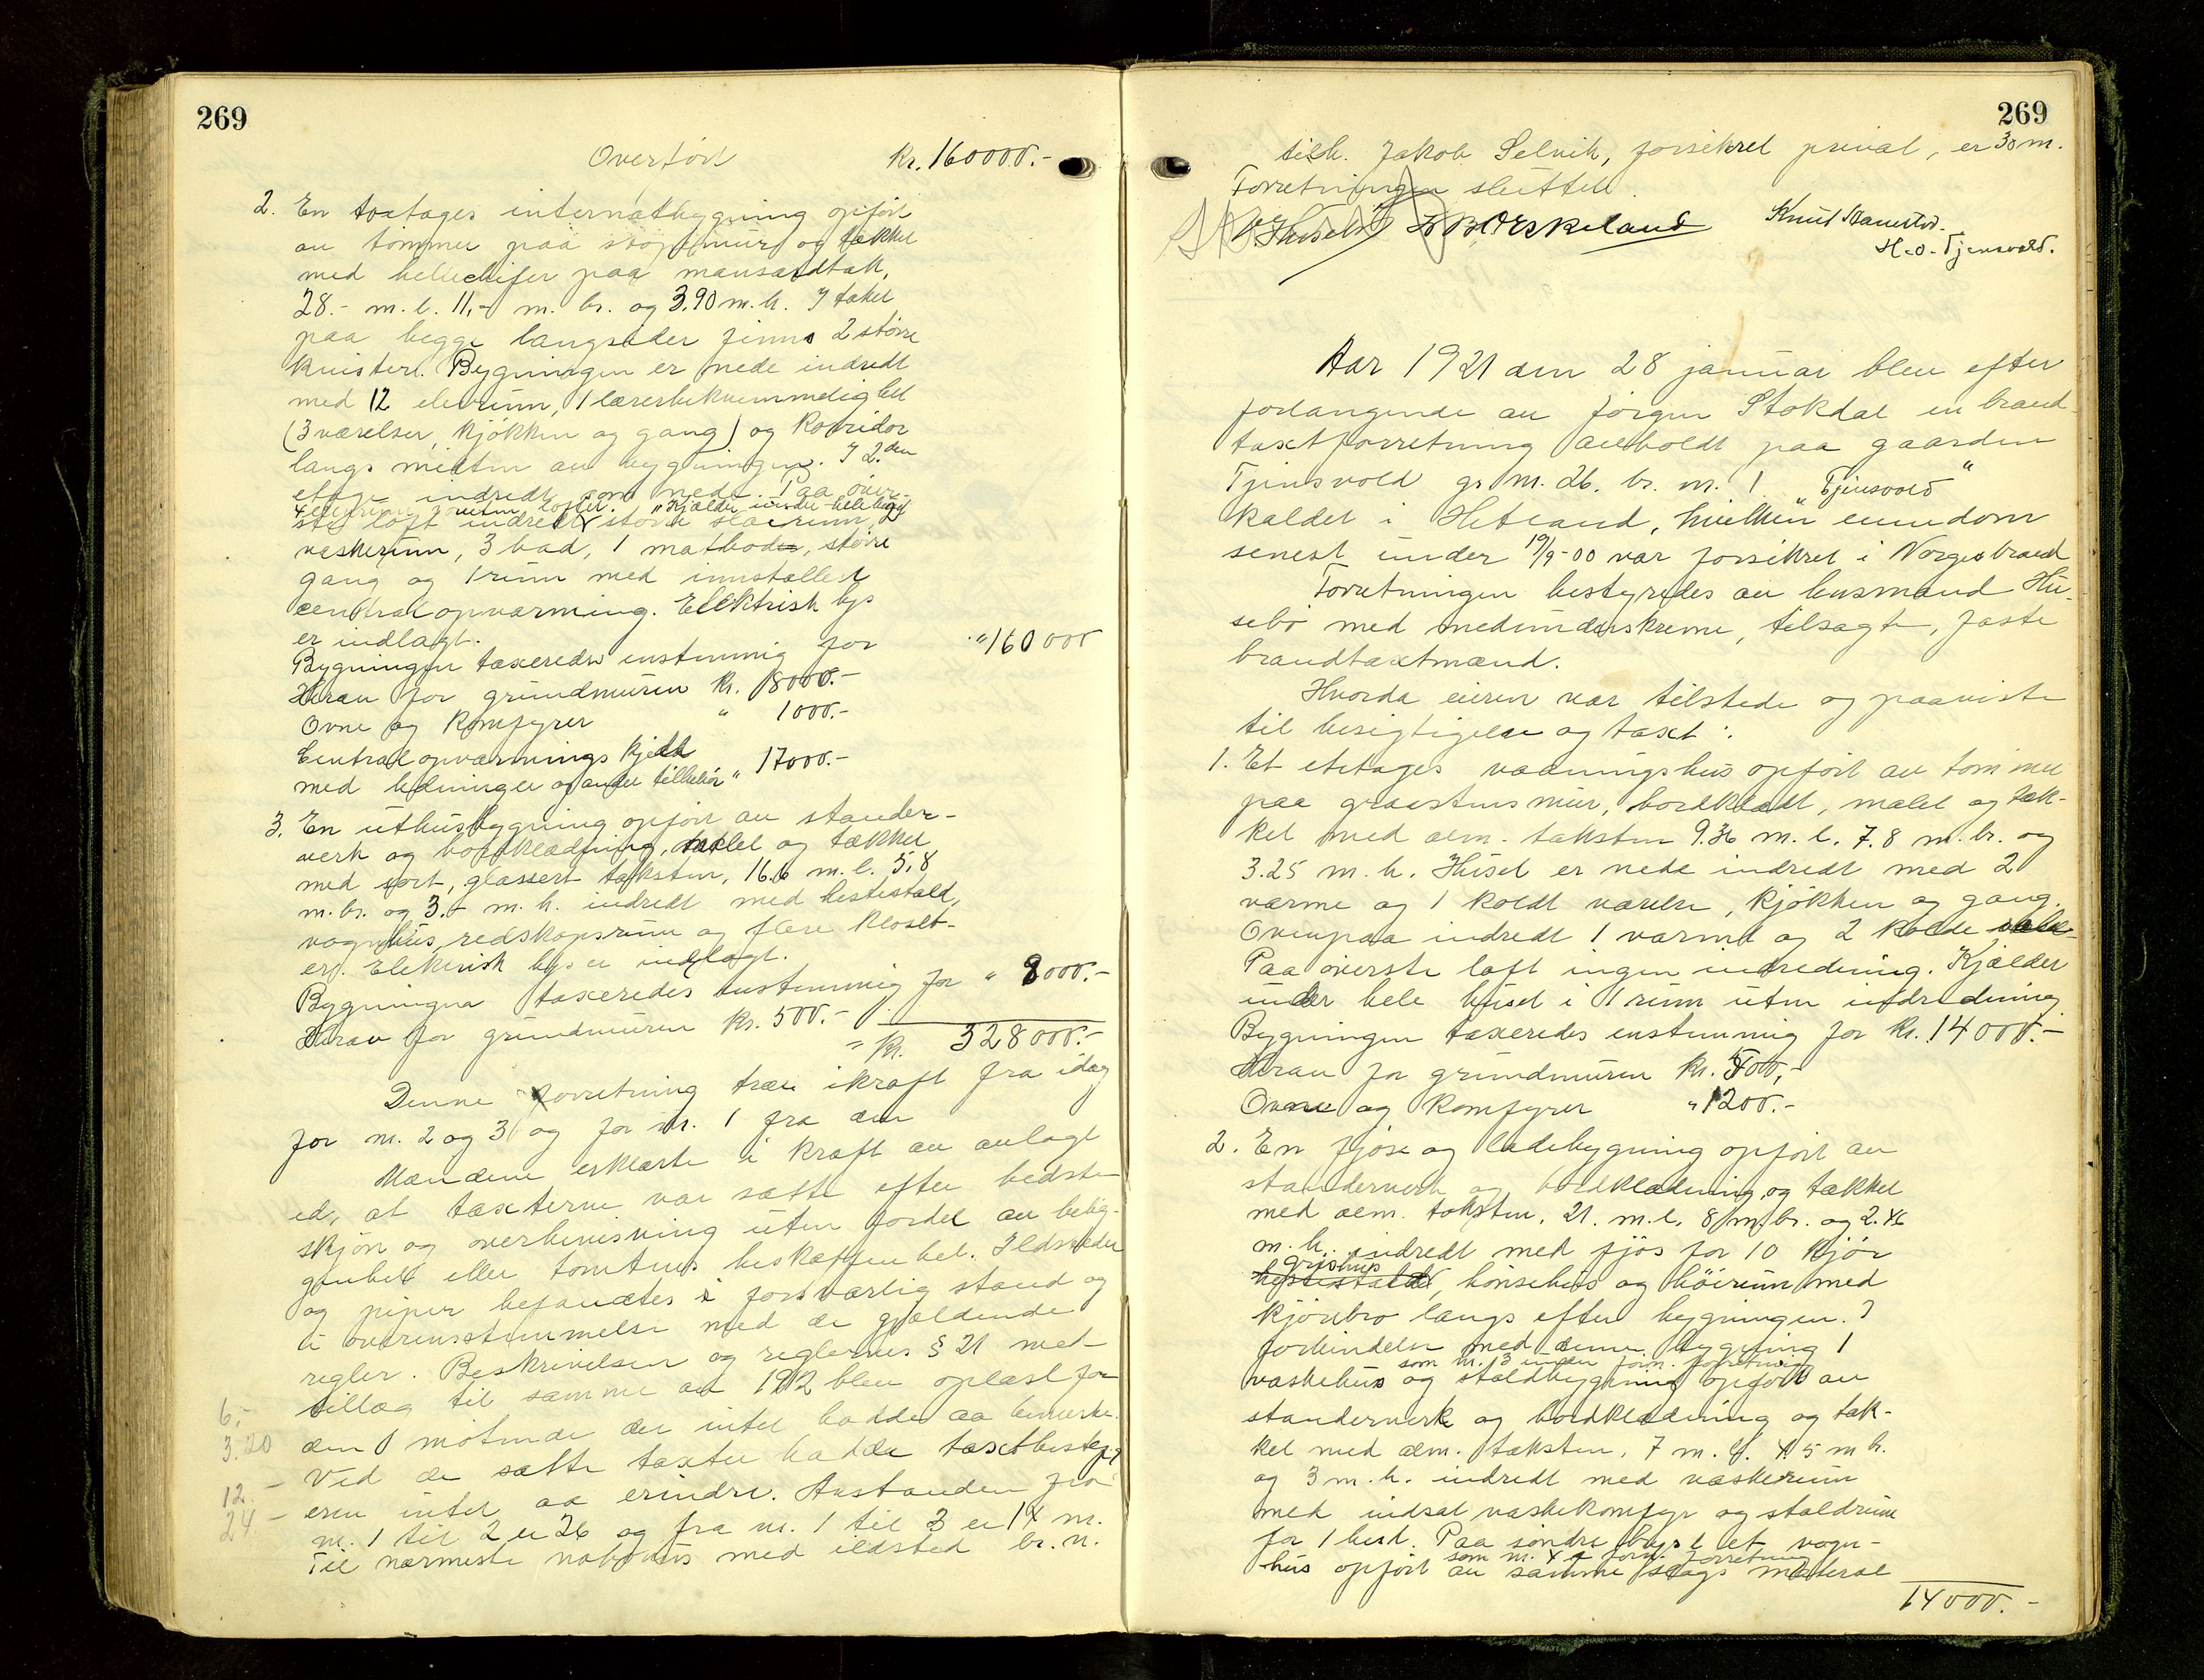 269
Overført Kr. 160000.-
2. En toetages internatbygning opført
av tømmer paa støpt mur og tækket
med helleskifer paa mansardtak,
28.- m. l. 11,- m. br. og 3.90 m. h. I taket
paa begge langsider finns 2 større
kvister. Bygningen er nede indredt
med 12 elevrum, 1 lærerbekvemmelighet
(3 værelser, kjøkken og gang) og korridor
langs midten av bygningen. I 2.den
etage indredt som nede. Paa øver-
ste loft indredt store
vaskerum, 3 bad, 1 matbod, større
gang og 1 rum med innstallert
centralopvarming. Elektrisk lys
er indlagt.
Bygningen taxeredes enstemmig for "160000
Herav for grundmuren Kr. 18000.-
Ovne og Komfyrer " 1000.-
Centralopvarmnings kjedel
med ledninger og andet tilbehør " 17000.-
3. En uthusbygning opført av stander-
verk og bordklædning, malet og tækket
med sort, glassert taksten, 16.6 m. l. 5,8
m. br. og 3.- m. h. indredt med hestestald,
vognhus, redskapsrum og flere kloset-
er. Elektrisk lys er indlagt.
Bygningen taxeredes enstemmig for " 8000.-
Herav for grundmuren Kr. 500.-
" Kr. 328000.-
Denne forretning træer ikraft fra idag
for nr. 2 og 3 og for nr. 1 fra den
Mændene erklærte i kraft av avlagt
ed, at taxterne var satte efter bedste
skjøn og overbevisning uten fordel av belig-
genhet eller tomtens beskaffenhet. Ildsteder
og piper befandtes i forsvarlig stand og
i overensstemmelse med de gjældende
regler. Beskrivelsen og reglernes § 21 med
tillæg til samme av 1912 blev oplæst for
6.-
den møtende der intet hadde aa bemerke.
3.20
Ved de satte taxter hadde taxtbestyr-
12.-
eren intet aa erindre. Avstanden fra
24 -
nr. 1 til 2 er 26 og fra nr. 1 til 3 er 14 m.
Til nærmeste nabohus med ildsted br. n.
269
tilh. Jakob Selvik, forsikret privat, er 30 m.
Forretningen sluttet.
Husebø B. Eskeland Knut Haarstad.
H. O. Tjensvold.
Aar 1921 den 28 januar blev efter
forlangende av Jørgen Stokdal en brand-
taxtforretning avholdt paa gaarden
Tjensvold gr. nr. 26. br. nr. 1 "Tjensvold"
kaldet i Hetland, hvilken eiendom
senest under 19/9-00 var forsikret i Norges brand
Forretningen bestyredes av lensmand Hu-
sebø med medunderskrevne, tilsagte, faste
brandtaxtmænd.
Hvorda eieren var tilstede og paaviste
til besigtigelse og taxt:
1. Et etetages vaaningshus opført av tømmer
paa graastensmur, bordklædt, malet og tæk-
ket med alm. taksten 9.36 m. l. 7.8 m. br. og
3.25 m. h. Huset er nede indredt med 2
varme og 1 koldt værelse, kjøkken og gang.
Ovenpaa indredt 1 varmt og 2 kolde
Paa øverste loft ingen indredning. Kjælder
under hele huset i 1 rum uten indredning
Bygningen taxeredes enstemmig for Kr. 14000.-
Herav for grundmuren Kr. 500,-
Ovne og Komfyrer " 1200.-
2. En fjøs og ladebygning opført av
standerverk og bordklædning og tækket
med alm. taksten. 21. m. l. 8 m. br. og 2.46
m. h. indredt med fjøs for 10 kjør
grishus
hestestald, hønsehus og høirum med
kjørebro langs efter bygningen. I
forbindelse med denne bygning 1
som nr. 3 under form. forretning
vaskehus og staldbygning opført av
standerverk og bordklædning og tæk-
ket med alm. taksten. 7 m. l. 4.5 m br.
og 3 m. h. indredt med vaskerum
med indsat vaskekomfyr og staldrum
for 1 hest. Paa søndre bygs l et vogn-
som nr. 4 i form. forretning
hus opført av samme slags material
14000.-